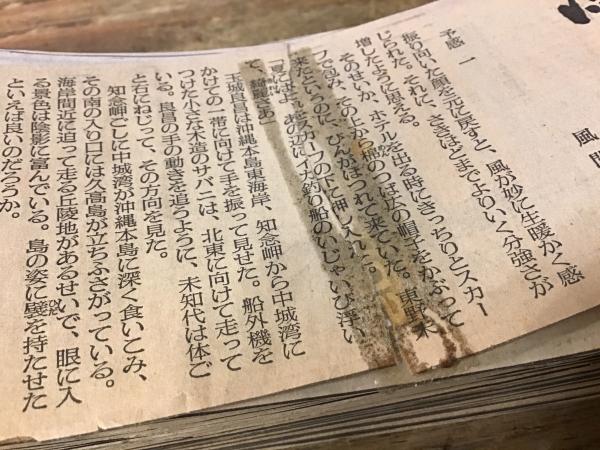 予感 一
振り向いた顔を元に戻すと、風が妙に生暖かく感
じられた。それに、さきほどまでよりいく分強さが
増したように思える。
そのせいか、ホテルを出る時にきっちりとスカー
フで包み、その上から棉のつば広の帽子をかぶって
来たというのに、びんがほつれて来ていた。東野未
スカーフの下に押し入れた。
夏にはよ、あの辺に、イカ釣り船のいじゃいび浮い
て、綺麗さあ」
玉城良昌は沖縄本島東海岸、知念岬から中城湾に
かけての一帯に向けて手を振って見せた。船外機を
つけた小さな木造のサバニは、北東に向けて走って
いる。良昌の手の動きを追うように、未知代は体ご
と右にねじって、その方向を見た。
知念岬ごしに中城湾が沖縄本島に深く食いこみ、
その南の入り口には久高島が立ちふさがっている。
海岸間近に迫って走る丘陵地があるせいで、眼に入
る景色は陰影に富んでいる。島の姿に襞を持たせた
といえば良いのだろうか。
風